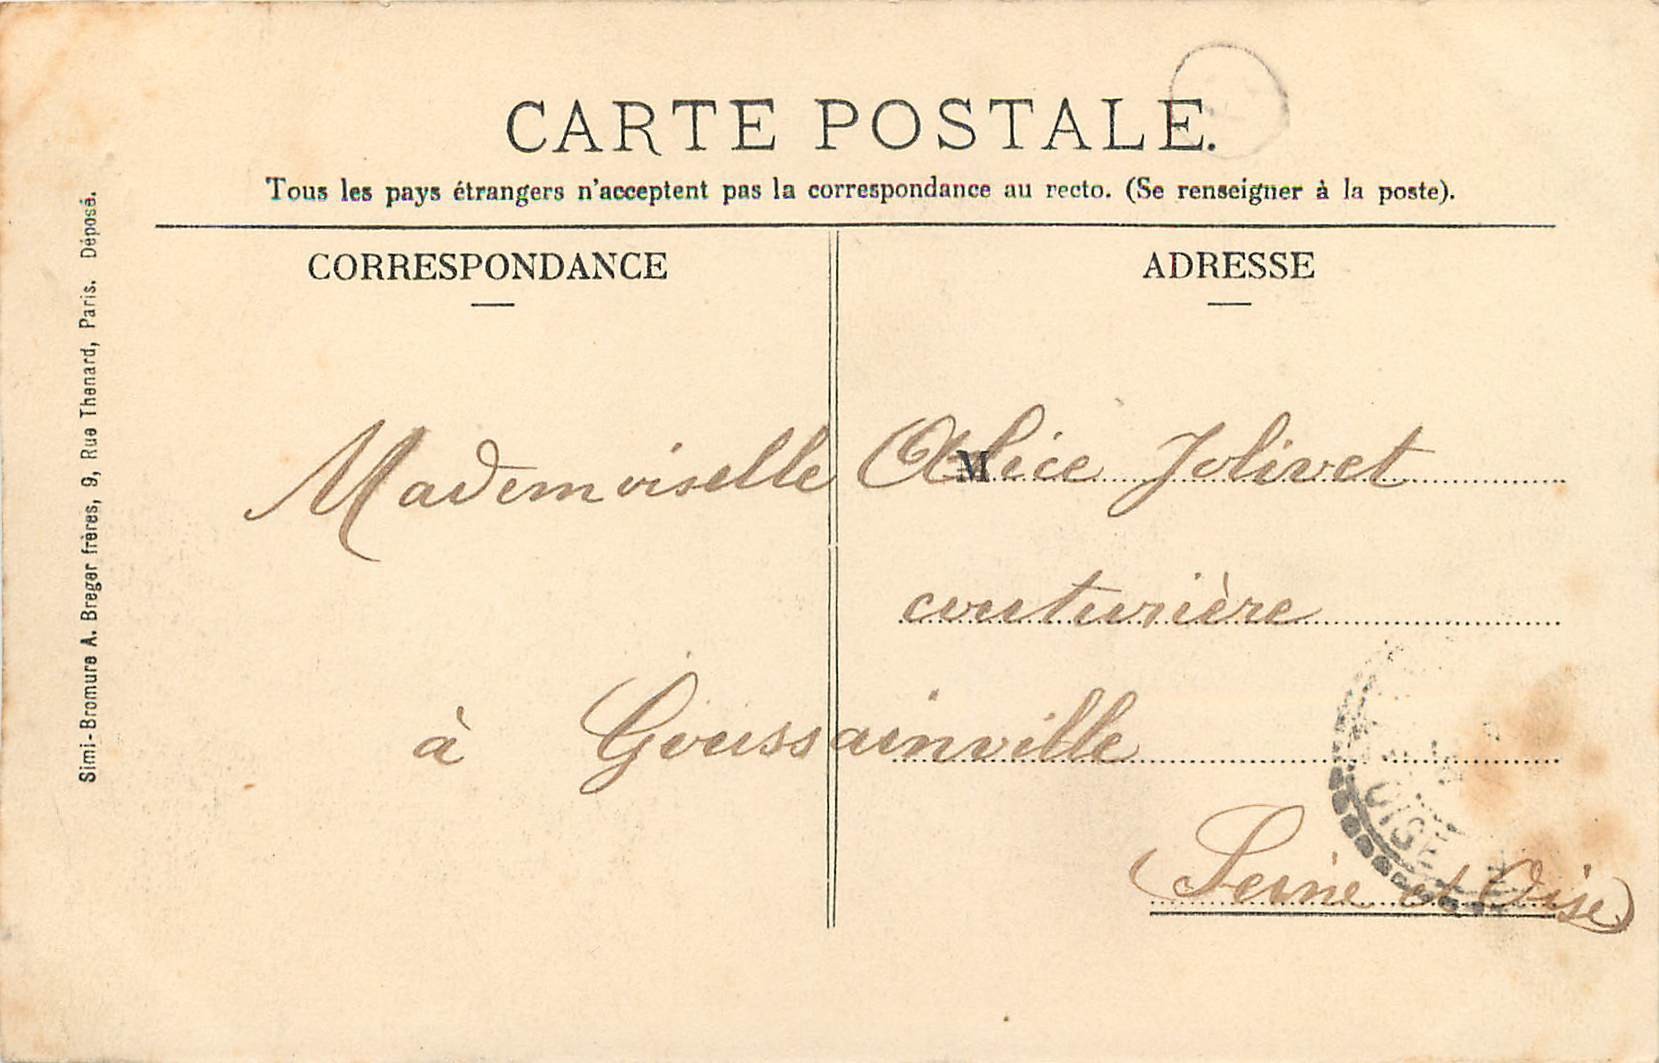 CARTE POSTALE.
Tous les pays étrangers n'acceptent pas la correspondance au recto. (Se renseigner à la poste).
CORRESPONDANCE
ADRESSE
Mademoiselle Alice Jolivet
M
couturière
à Goussainville
(Seine et Oise)
OISE
Simi-Bromure A. Breger frères, 9, Rue Thenard, Paris. Déposé.